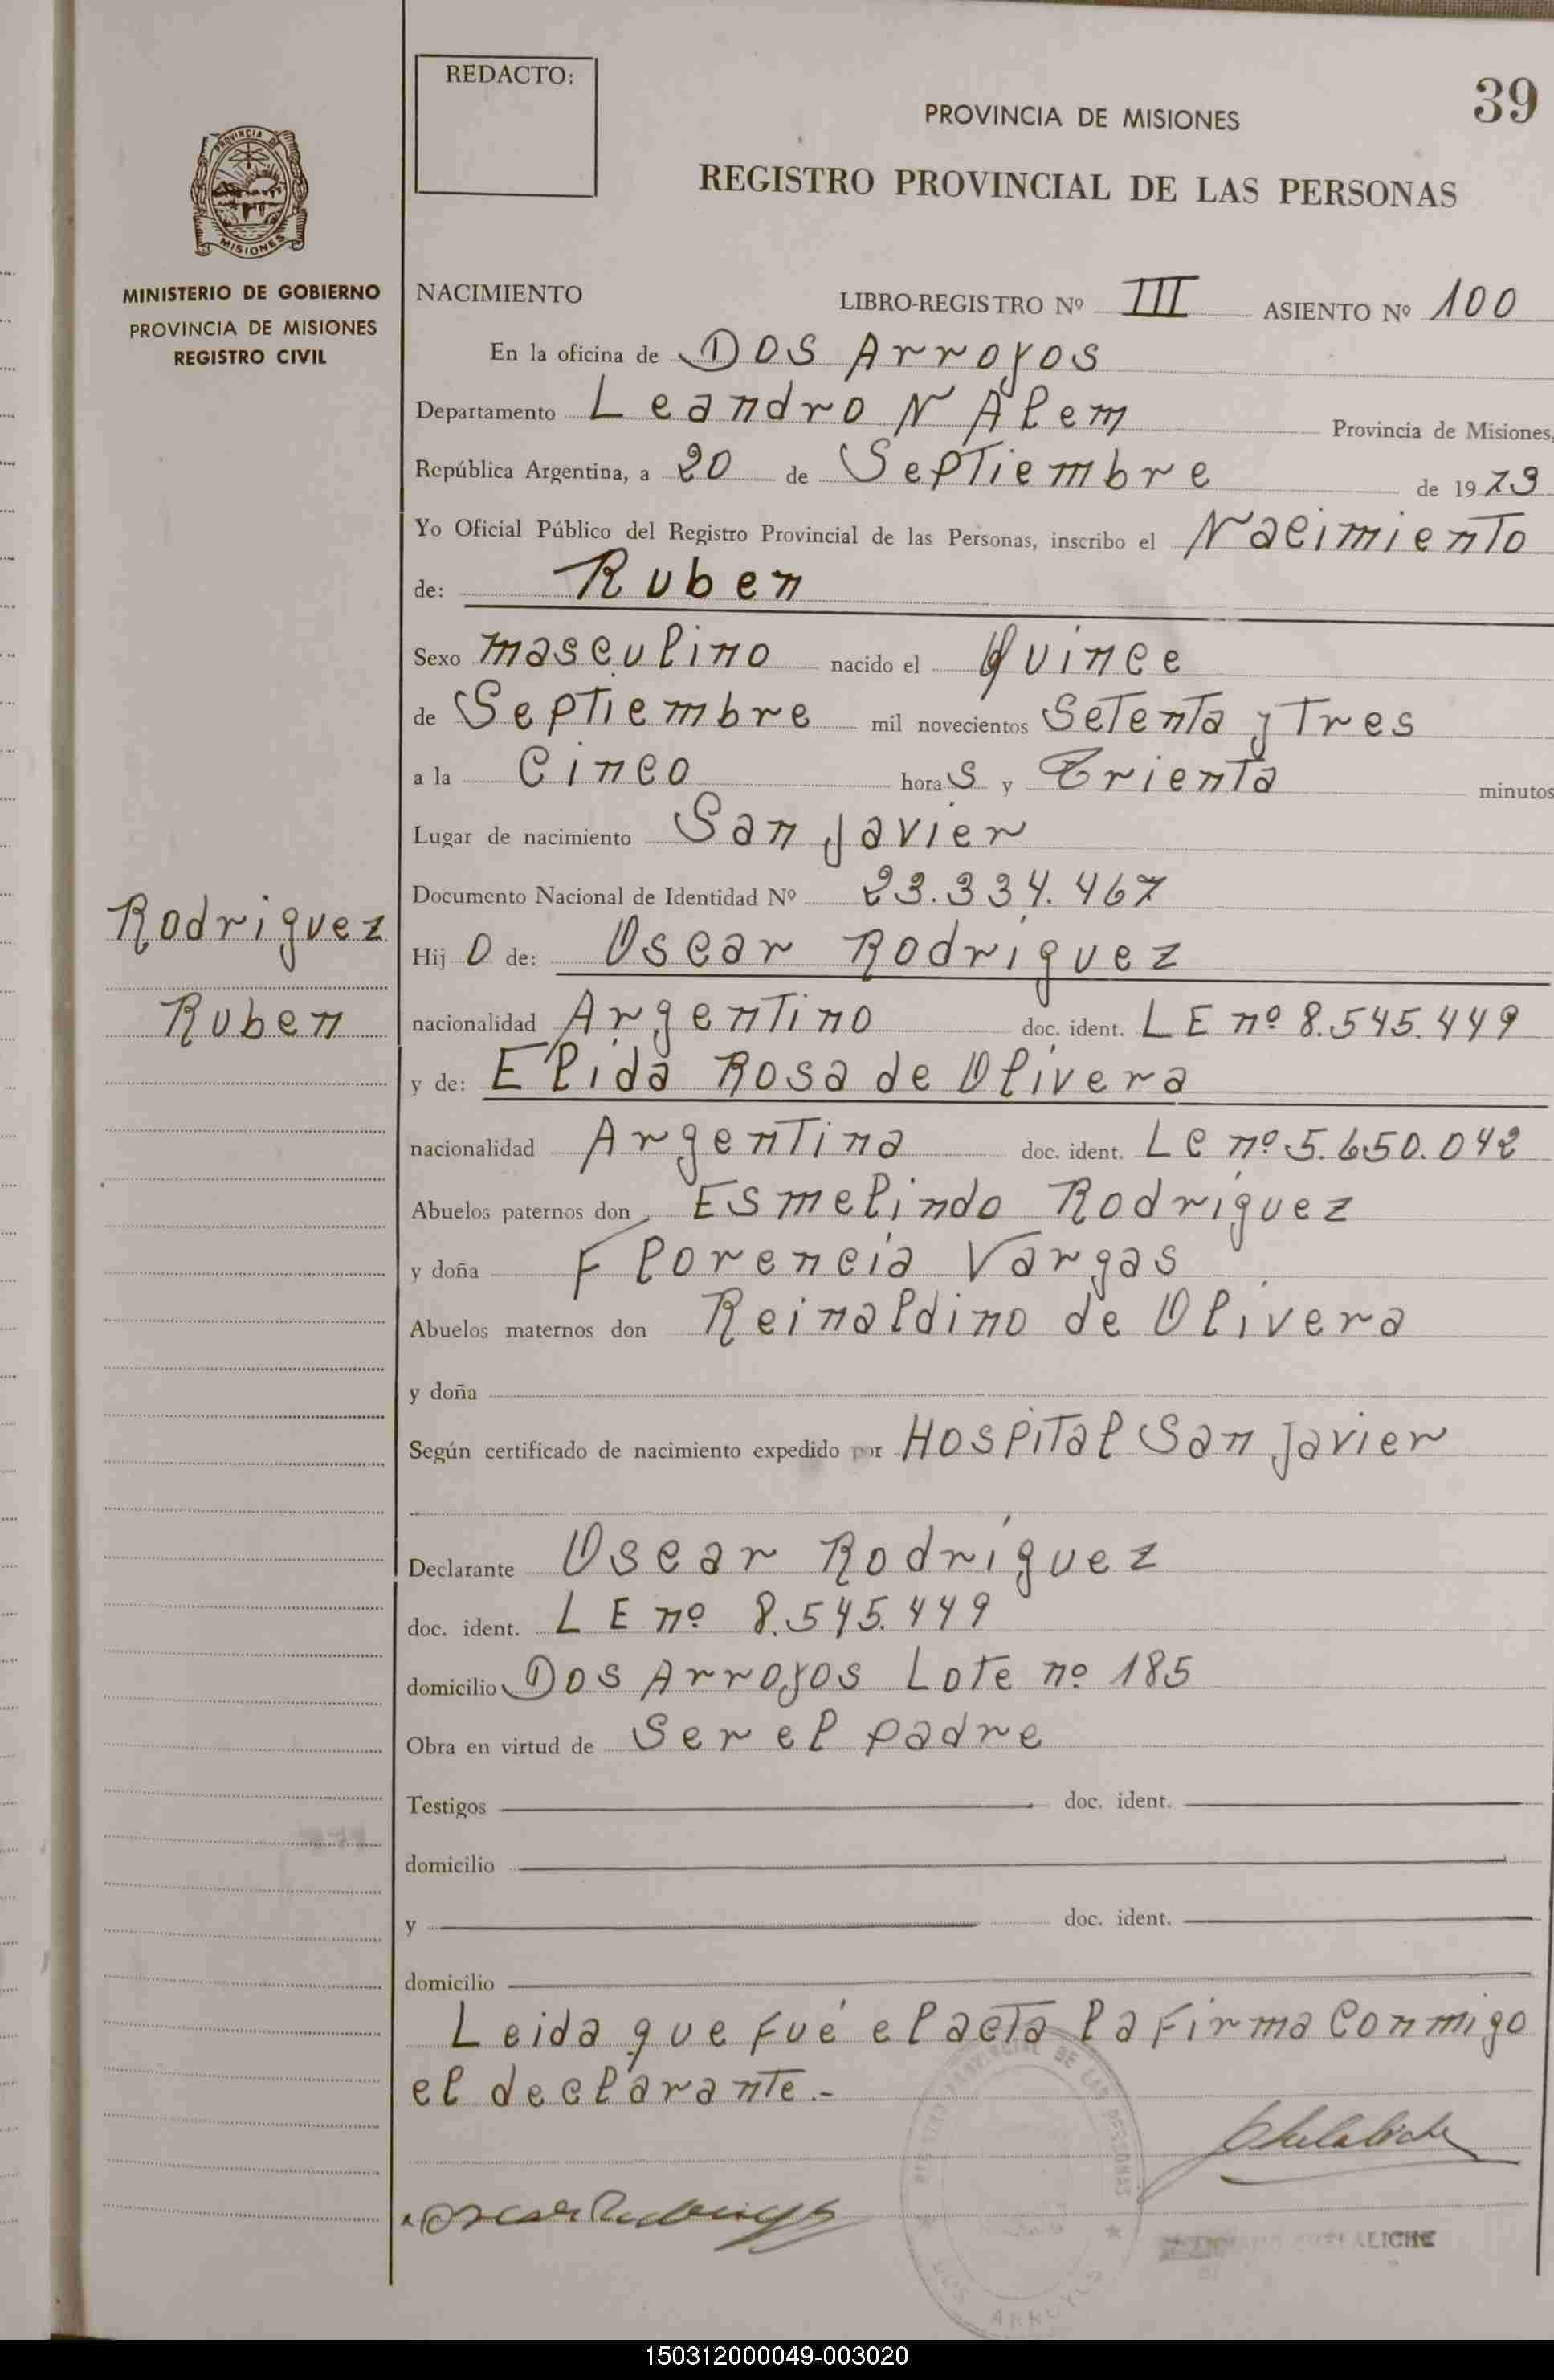 REDACTO:
39
PROVINCIA DE MISIONES
REGISTRO PROVINCIAL DE LAS PERSONAS
PROVINCIA DE
MISIONES
MINISTERIO DE GOBIERNO
PROVINCIA DE MISIONES
REGISTRO CIVIL
NACIMIENTO LIBRO-REGISTRO Nº III ASIENTO Nº 100
En la oficina de Dos Arroyos
Departamento Leandro N Alem Provincia de Misiones,
República Argentina, a 20 de Septiembre de 1973
Yo Oficial Público del Registro Provincial de las Personas, inscribo el Nacimiento
de: Ruben
Sexo masculino nacido el Quince
de Septiembre mil novecientos Setenta y Tres
a la Cinco horas y Trienta minutos
Lugar de nacimiento San Javier
Documento Nacional de Identidad Nº 23.334.467
Rodriguez
Ruben
Hijo de: Oscar Rodriguez
nacionalidad Argentino doc. ident. LE nº 8.545.449
y de: Elida Rosa de Olivera
nacionalidad Argentina doc. ident. LC nº 5.650.042
Abuelos paternos don Esmelindo Rodriguez
y doña Florencia Vargas
Abuelos maternos don Reinaldino de Olivera
y doña
Según certificado de nacimiento expedido por Hospital San Javier
Declarante Oscar Rodriguez
doc. ident. LE nº 8.545.449
domicilio Dos Arroyos Lote nº 185
Obra en virtud de Ser el padre
Testigos doc. ident.
domicilio
y doc. ident.
domicilio
Leida que fué el acta la firma conmigo
el declarante.-
REGISTRO PROVINCIAL DE LAS PERSONAS
DOS ARROYOS
Oscar Rodriguez
150312000049-003020